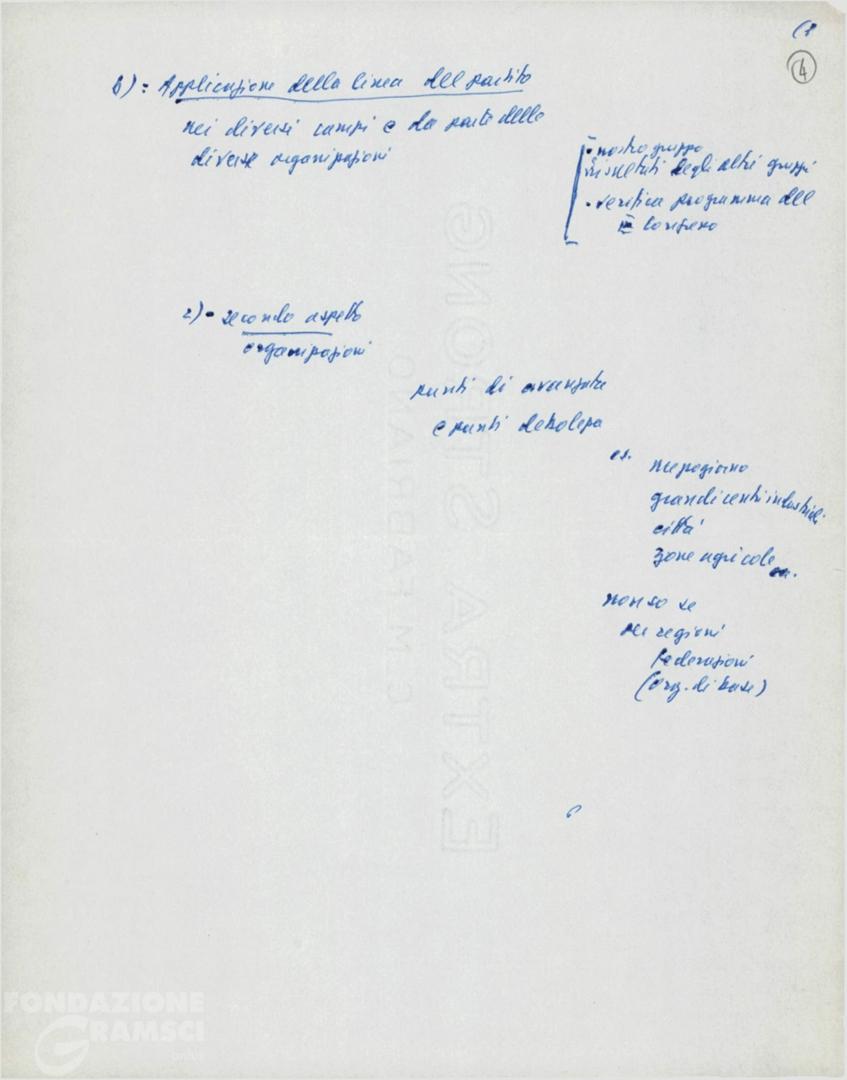 4
b) = Applicazione della linea del partito
nei diversi campi e da parte delle
diverse organizzazioni
- nostro gruppo
risultati degli altri gruppi
- verifica programma del
Congresso
2) - secondo aspetto
organizzazioni
punti di avanzata
e punti debolezza
es.
mezzogiorno
grandi centri industriali
città
zone agricole
non so se
per regioni
federazioni
(org. di base)
EXTRA STRONG
C. M. FABRIANO
FONDAZIONE
GRAMSCI